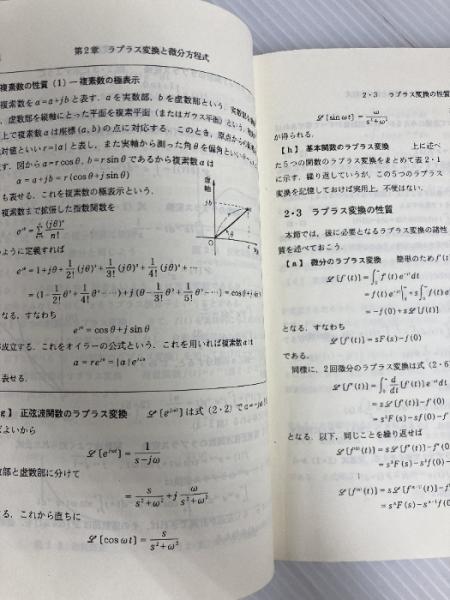 第2章 ラプラス変換と微分方程式
複素数の性質（1）—複素数の極表示
複素数をα=a+jbと表す．aを実部数，bを虚数部という．実数部を横
，虚数部を縦軸にとった平面を複素平面（またはガウス平面）という．複素
上で複素数αは座標(a, b)の点に対応する．このとき，原点からの
対値といいr=|α|と表し，また実軸から測った角θを偏角という
す．図からa=r cosθ, b=r sinθであるから複素数αは
α=a+jb=r(cosθ+j sinθ)
も表せる．これを複素数の極表示という．
複素数まで拡張した指数関数を
のように定義すれば
e^{jθ}=1+jθ+1/2!(jθ)²+1/3!(jθ)³+1/4!(jθ)⁴+…
=(1-1/2!θ²+1/4!θ⁴-…)+j(θ-1/3!θ³+1/5!θ⁵-…)=cosθ+j
となる．すなわち
e^{jθ}=cosθ+j sinθ
が成立する．これをオイラーの公式という．これを用いれば複素数αは
α=re^{jθ}=|α|e^{jθ}
表せる．
虚軸
jb
r
θ
g】 正弦波関数のラプラス変換 ℒ[e^{jωt}]は式（2・2）で
ばよいから
ℒ[e^{jωt}]=1/(s-jω)
数部と虚数部に分けて
=s/(s²+ω²)+j ω/(s²+ω²)
る．これから直ちに
ℒ[cos ωt]=s/(s²+ω²)
2・3 ラプラス変換の性質
ℒ[sin ωt]=ω/(s²+ω²)
が得られる．
【h】 基本関数のラプラス変換 上に述べ
た5つの関数のラプラス変換をまとめて表2・1
に示す．繰り返していうが，この5つのラプラス
変換を記憶しておけば実用上，不便はない．
2・3 ラプラス変換の性質
本節では，後に必要となるラプラス変換の諸性
質を述べておこう．
【a】 微分のラプラス変換 簡単のためf′(t)
ℒ[f′(t)]=∫₀^∞ f′(t)e^{-st}dt
=f(t)e^{-st}|₀^∞+s∫₀^∞ f(t)e
=-f(0)+sℒ[f(t)]
となる．すなわち
ℒ[f′(t)]=sF(s)-f(0)
である．
同様に，2回微分のラプラス変換は式（2・6
ℒ[f″(t)]=∫₀^∞ d/dt{f′(t)}e^{-st}dt
=sℒ[f′(t)]-f′(0)
=s²F(s)-sf(0)-f′
となる．以下，同じことを繰り返せば
ℒ[f‴(t)]=sℒ[f″(t)]-f″(0
=s³F(s)-s²f(0)-